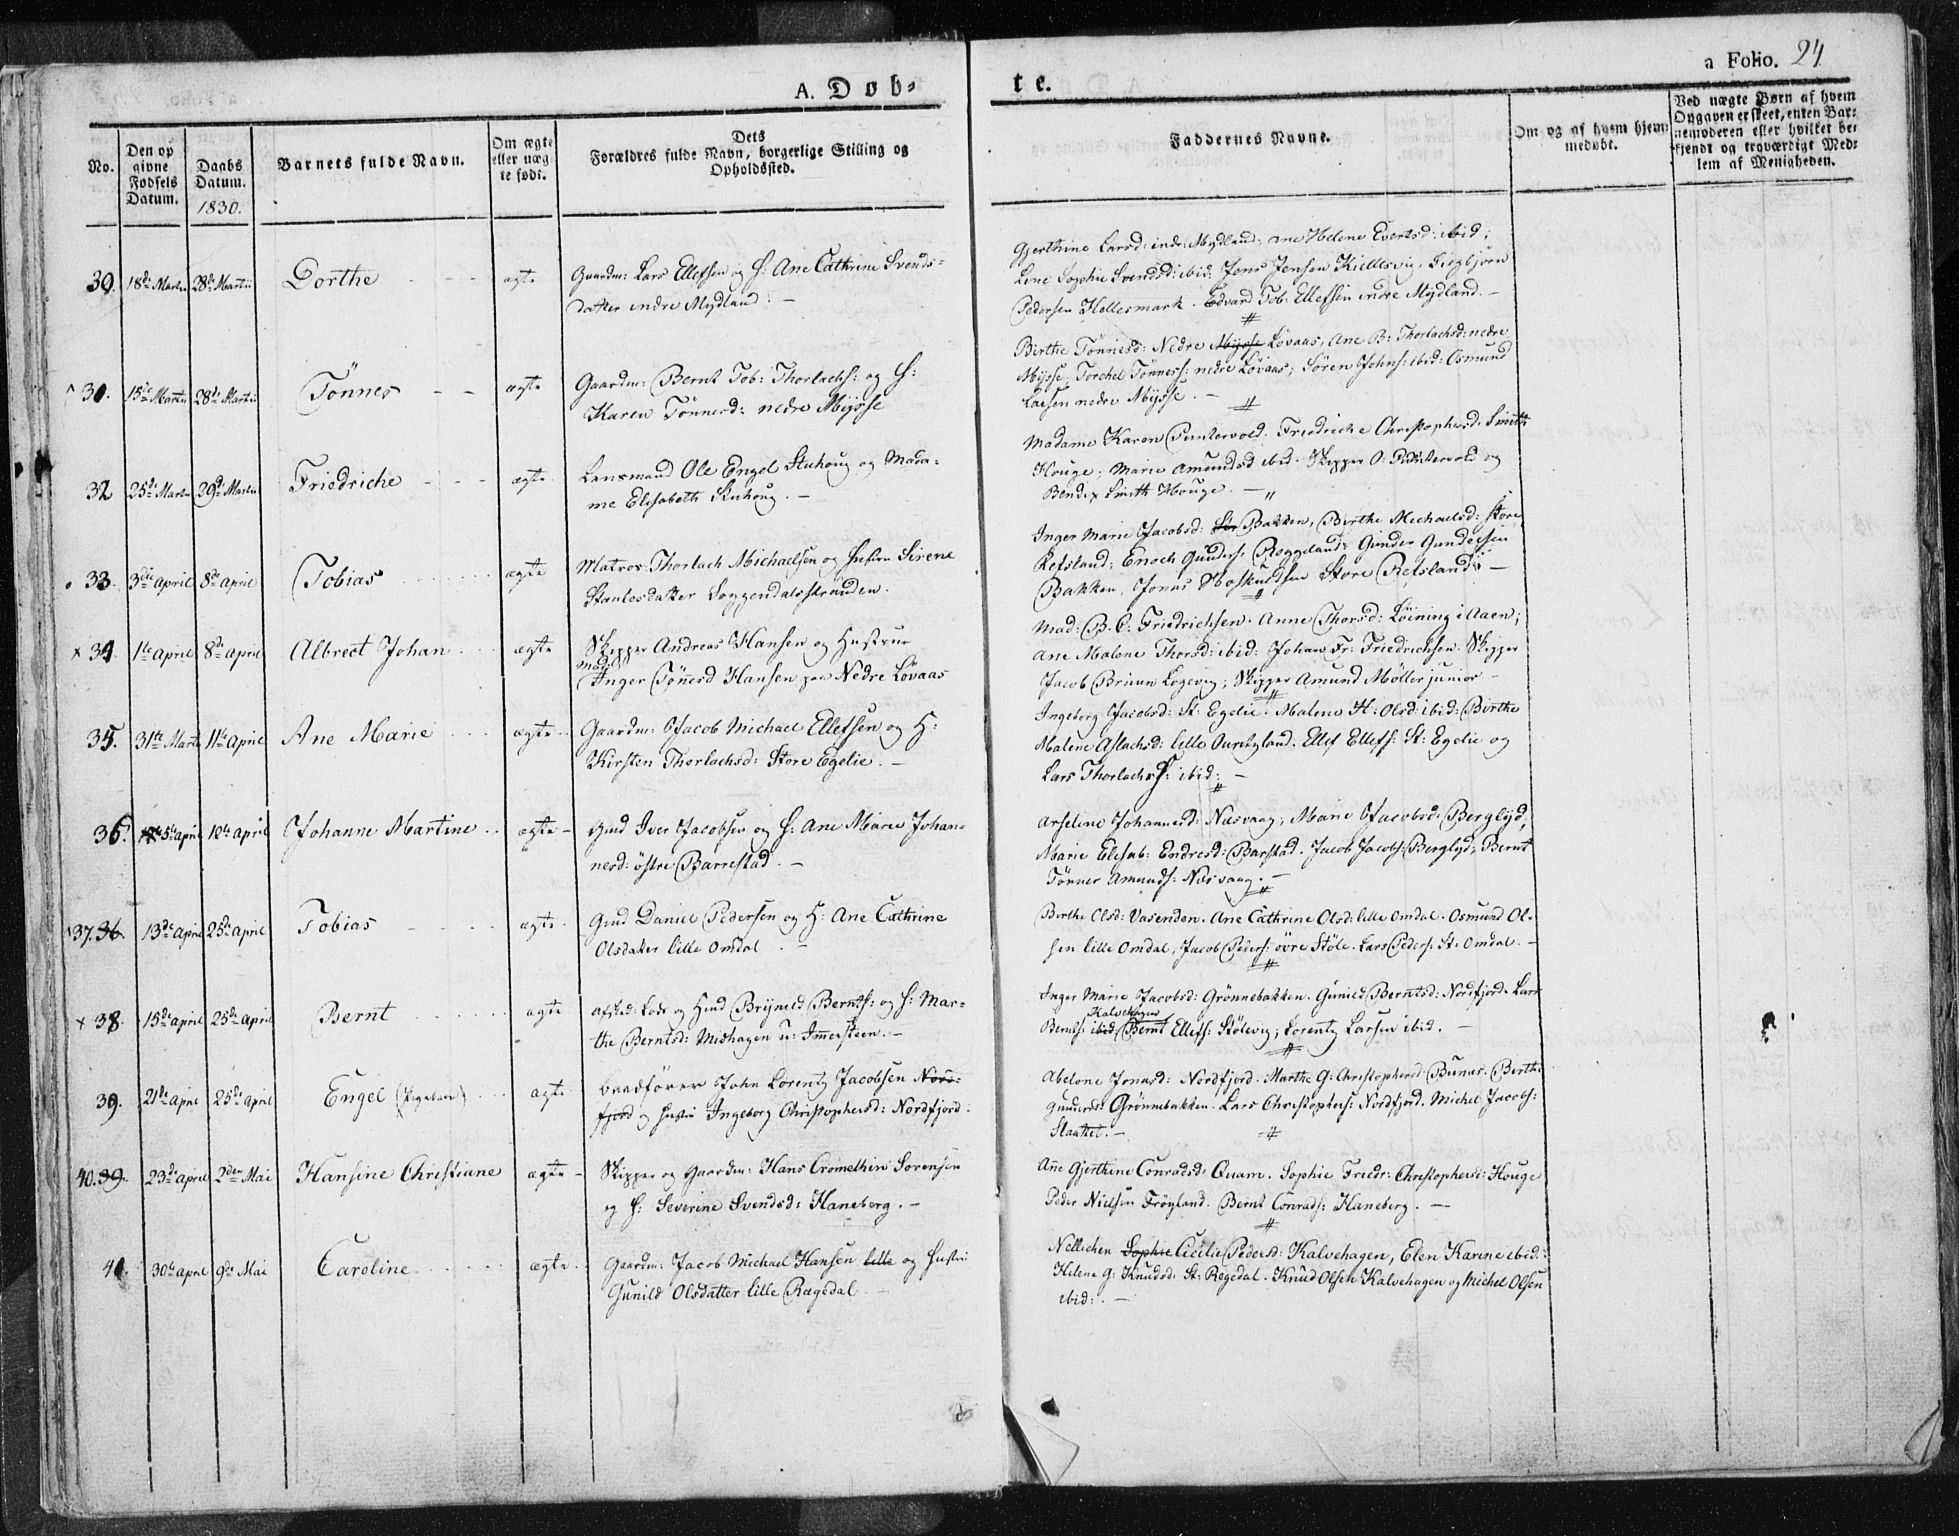 A. Døb=
te.
a Folio. 24
No.
Den op
givne
Fødsels
Datum.
Daabs
Datum.
1830.
Barnets fulde Navn.
Om ægte
eller uæg-
te født.
Dets
Forældres fulde Navn, borgerlige Stilling og
Opholdssted.
Faddernes Navne.
Om og af hvem hjem-
medøbt.
Ved uægte Børn af hvem
Opgaven er skeet, enten Bar-
nemoderen eller hvilket be-
kjendt og troværdigt Med-
lem af Menigheden.
30. 18de Martii 28de Martii Dorthe - - ægte Gaardm: Lars Ellefsen og H: Ane Cathrine Svends=
datter indre Mydland. -
Gjerthine Larsd: indr: Mydland, Ane Helene Evertsd: ibid;
Line Sophie Svendsd: ibid. Jens Jensen Kiellesvig,
Pedersen Hellesmark. Edvard Tob: Ellefsen indre Mydland. -
31. 15de Martii 28de Martii Tönnes - - ægte Gaardm: Bernt Tob: Thorlachs: og H:
Karen Tönnesd: nedre Mysse
Birthe Tönnesd: Nedre Mysse Lövaas, Ane B: Thorlachsd: nedre
Mysse, Torchel Tönness: nedre Lövaas; Sören Johns: ibid: Osmund
Larsen nedre Mysse. -
32 25de Martii 29de Martii Friedriche - - - ægte. Lensmand Ole Engel Stuhoug og Mada=
me Elisabeth Stuhoug. -
Madame Karen Puntervold. Friedriche Christophersd. Smith
Houge; Marie Amundsd ibid. Skipper O. Puntervold og
Bendix Smith Houge. -
33. 3die April 8de April Tobias ægte Matros Thorlach Michaelsen og Hustru Sirene
Stanlesdatter Soggendalsstranden.
Inger Marie Jacobsd: Bakken, Birthe Michaelsd: Store
Refsland; Enoch Gunders: Roggeland; Gunder Gundersen
Bakken, Jonas Store Refsland: -
x 34. 1te April 8de April Albrect Johan ægte Skipper Andreas Hansen og Hustrue
Mad:
Inger Tönnesd Hansen paa Nedre Lövaas
Mad: B. C: Friedrichsen. Anne Thorsd: Löining i Aaen;
Ane Malene Thorsd: ibid: Johan Fr: Friedrichsen. Skipper
Jacob Bruun Logevig; Skipper Amund Möller junior -
35. 31te Martii 11te April Ane Marie ægte. Gaardm: Jacob Michael Ellefsen og H:
Kirsten Thorlachsd: Store Egelie. -
Ingeborg Jacobsd: St. Egelie. Malene H: Olsd: ibid: Birthe
Malene Aslachsd: lille Ouriyland. Ellef Ellefs: St: Egelie og
Lars Thorlachs: ibid: -
36. 5te April 12te April Johanne Martine ægte - Gmd Iver Jacobsen og H: Ane Marie Johan=
nesd: östre Barrestad. -
Arseline Johannesd: Nasvaag; Marie Jacobsd: Berglyd,
Marie Elisab: Endresd: Barstad. Jacob Jacobs: Berglyd, Bernt
Tönnes Amunds: Nasvaag. -
37. 36. 13de April 25de April Tobias - ægte. Gmd Daniel Pedersen og H: Ane Cathrine
Olsdatter lille Omdal. -
Birthe Olsd: Vasenden. Ane Cathrine Olsd: lille Omdal. Osmund Ol=
sen lille Omdal, Jacob Peders: övre Stöle. Lars Peders: St. Omdal. -
x 38. 15de April 25de April Bernt ægte Afsked: Lods og Hmd Brynild Bernts: og H: Mar=
the Berntsd: Midhagen u: Immersteen. -
Inger Marie Jacobsd: Grönnebakken. Gunild Berntsd: Nordfjord. Lars
Kalvehagen
Bernts: ibid; Bernt Ellefs: Stölevig; Lorentz Larsen ibid. -
39. 21de April 25de April Engel (Pigebarn) ægte. Baadförer John Lorentz Jacobsen Nord=
fjord og Hustru Ingeborg Christophersd: Nordfjord.
Abelone Jonasd: Nordfjord. Marthe G: Christophersd: Bunas. Birthe
Gundersd: Grönnebakken. Lars Christophers: Nordfjord. Michel Jacobs:
-
40. 39. 23de April 2den Mai Hansine Christiane ægte - Skipper og Gaardm: Hans Cromethin Sorensen
og H: Severine Svendsd: Haneberg. -
Ane Gjerthine Conradsd: Quam. Sophie Friedr: Christophersd: Houge
Peder Nielsen Fröyland. Bernt Conrads: Haneberg. -
41. 30te April 9de Mai Caroline ægte. Gaardm: Jacob Michael Hansen lille og Hustru
Gunild Olsdatter lille Rægedal. -
Nellichen Sophie Cicilie Pedersd: Kalvehagen, Elen Karine ibid:
Helene G: Knudsd: St: Regedal. Knud Olsen Kalvehagen og Michel Olsen
ibid: -